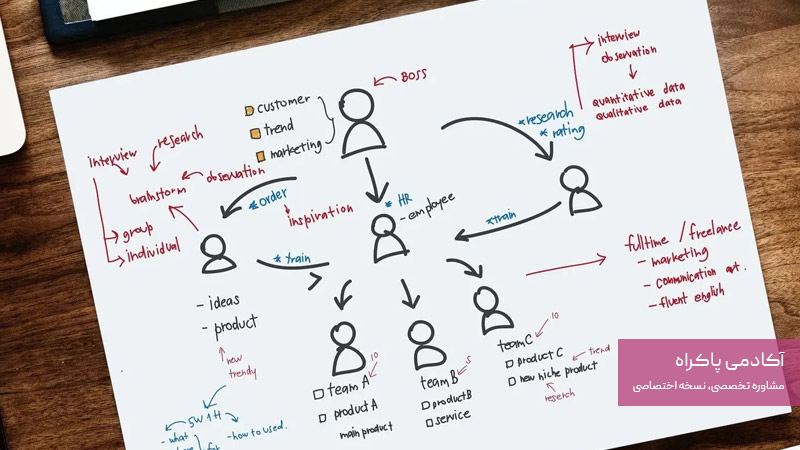 BOSS
customer
trend
marketing
interview
observation
quantitative data
qualitative data
*research
* rating
interview
research
brainstorm
observation
group
individual
*order
inspiration
* HR
- employee
*train
* train
- ideas
- product
new
trendy
5W1H
- what
- how to used.
team A
10
product A
main product
team B
5
product B
service
team C
10
product C
trend
new niche product
research
fulltime / freelance
- marketing
- communication
- fluent english
آکادمی پاکراه
مشاوره تخصصی، نسخه اختصاصی